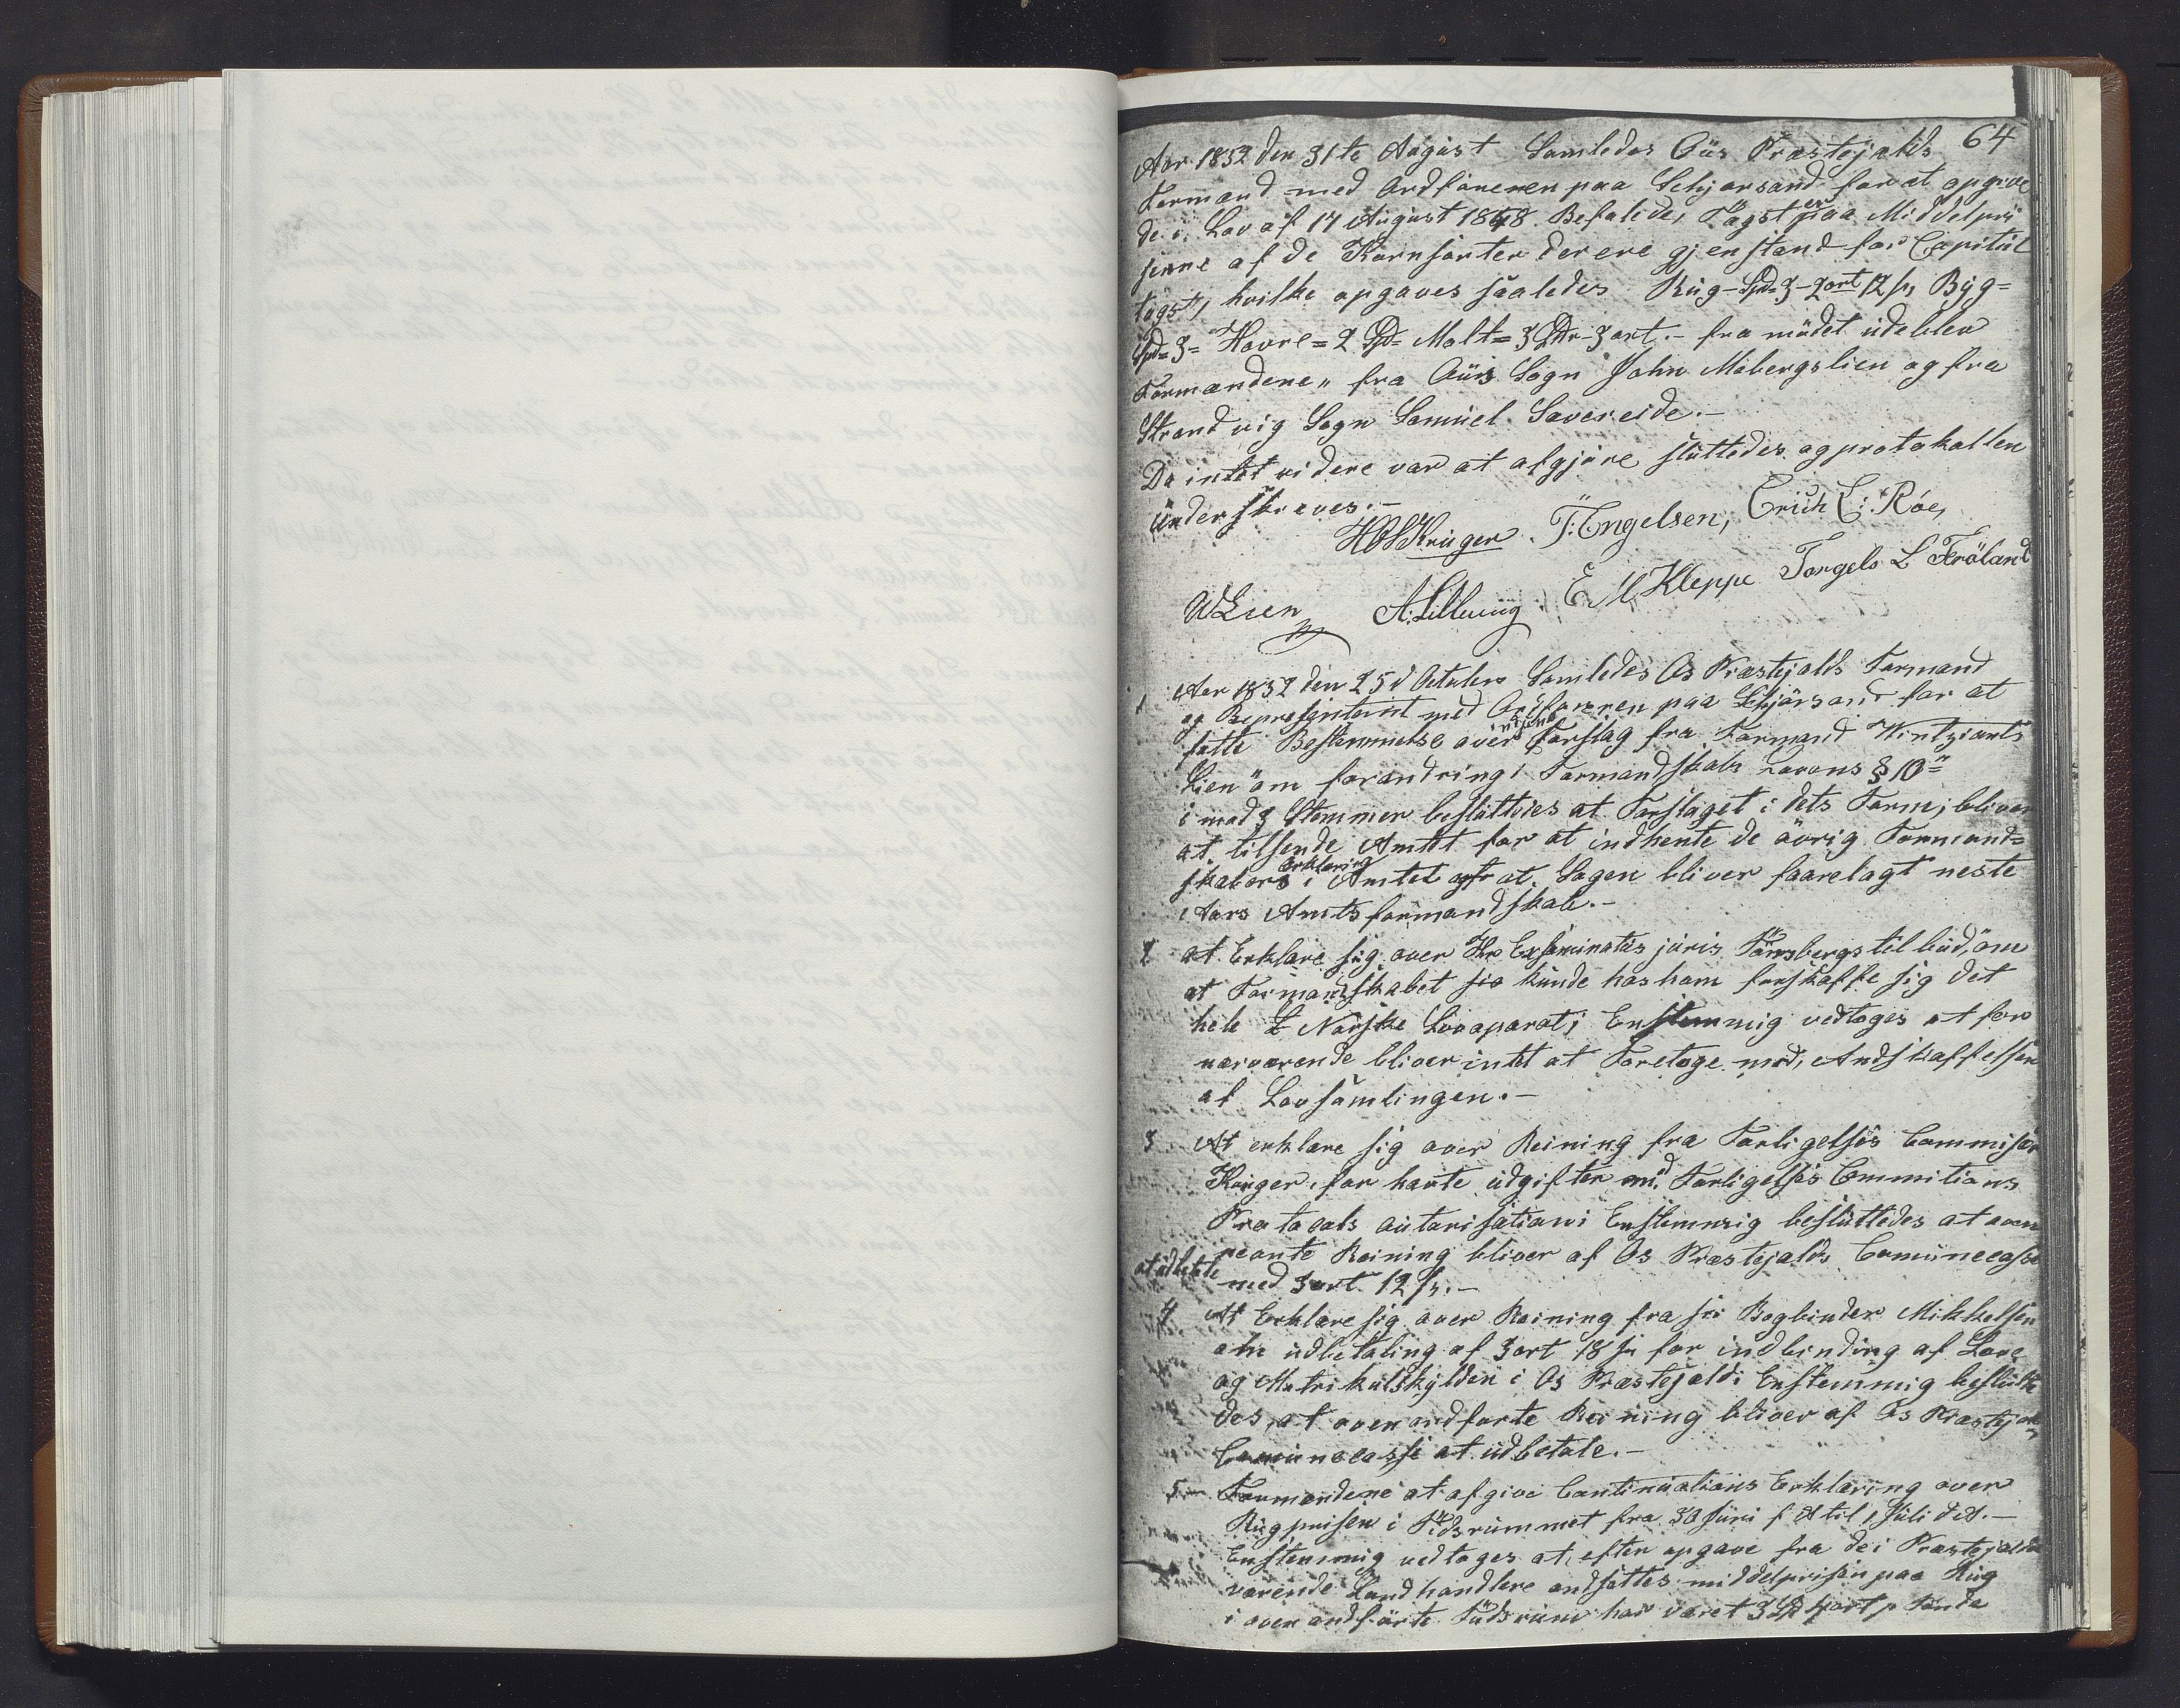 64
Aar 1852 den 31te August Samledes Ous Præstejalds
Formænd med Ordføreren paa Schjørsand for at opgive
de i Lov af 17 August 1848 Befalede, Tagster paa Middelpri
serne af de Kornsorter der ere gjenstand for Capitül
tagst, hvilke opgaves saaledes Rüg-Spd=3-2ort 12ß, Byg=
Spd=3= Havre=2 Spd= Malt=3 Spdr-3ort.- fra mødet üdeblev
Formændene" fra Ous Sogn John Mobergslien og fra
Strandvig Sogn Samüel Sævereide.-
Da intet videre var at afgjøre slüttedes og protokollen
ünderskreves.-
HOSKrüger. T: Engelsen, Erich E: Röe,
WLien A. Lillevüg. E M Kleppe Torgels L Fröland
1 Aar 1852 den 25d October Samledes Os Præstejalds Formænd
og Repræsentant med Ordføreren paa Schjørsand for at
fatte Bestemmelse over Forslag fra Formand Wintziants
Lien om forandring i Formandskabs Lovens § 10de
i mod 3 Stemmer beslüttedes at Forslaget i dets Form, bliver
at tilsende Amtet for at indhente de övrig Formand=
skabers Erklæring i Amtet at Sagen bliver faarelagt neste
Aars Amtsformandskab.-
2 at Erklære sig over Hr Exsaminatüs jüris Tönsbergs tilbüd om
at Formandskabet künde hos ham forskaffe sig det
hele Norske Lovaparat; Enstemmig vedtoges at for
nærværende bliver intet at Foretage med, Andskaffelsen
af Lovsamlingen.-
3 At erklære sig over Reining fra Forligelses Commisær
Krüger, for havte üdgifter med Forligelses Commitions
Protocols aütorisation; Enstemmig beslüttedes at oven
nevnte Reining bliver af Os Præstejalds Comünecasse
at üdbetale med 3ort 12ß.-
4 At Erklære sig over Reining fra Bogbinder Mikkelsen
om üdbetaling af 3ort 18ß for indbinding af Love
og Matrikulskylden i Os Præstejald; Enstemmig beslütte
des, at oven andførte Reining bliver af Os Præstejalds
Comünecasse at üdbetale.-
5 Formændene at afgive Continüations Erklæring over
Rügprisen i Tidsrümmet fra 30 Jüni f A til 1 Jüli d A.-
Enstemmig vedtoges at, efter opgave fra de i Præstejaldet
værende Landhandlere andsettes middelprisen paa Rüg
i oven andførte Tüdsrüm har været 3 Spd 4ort p Tønde